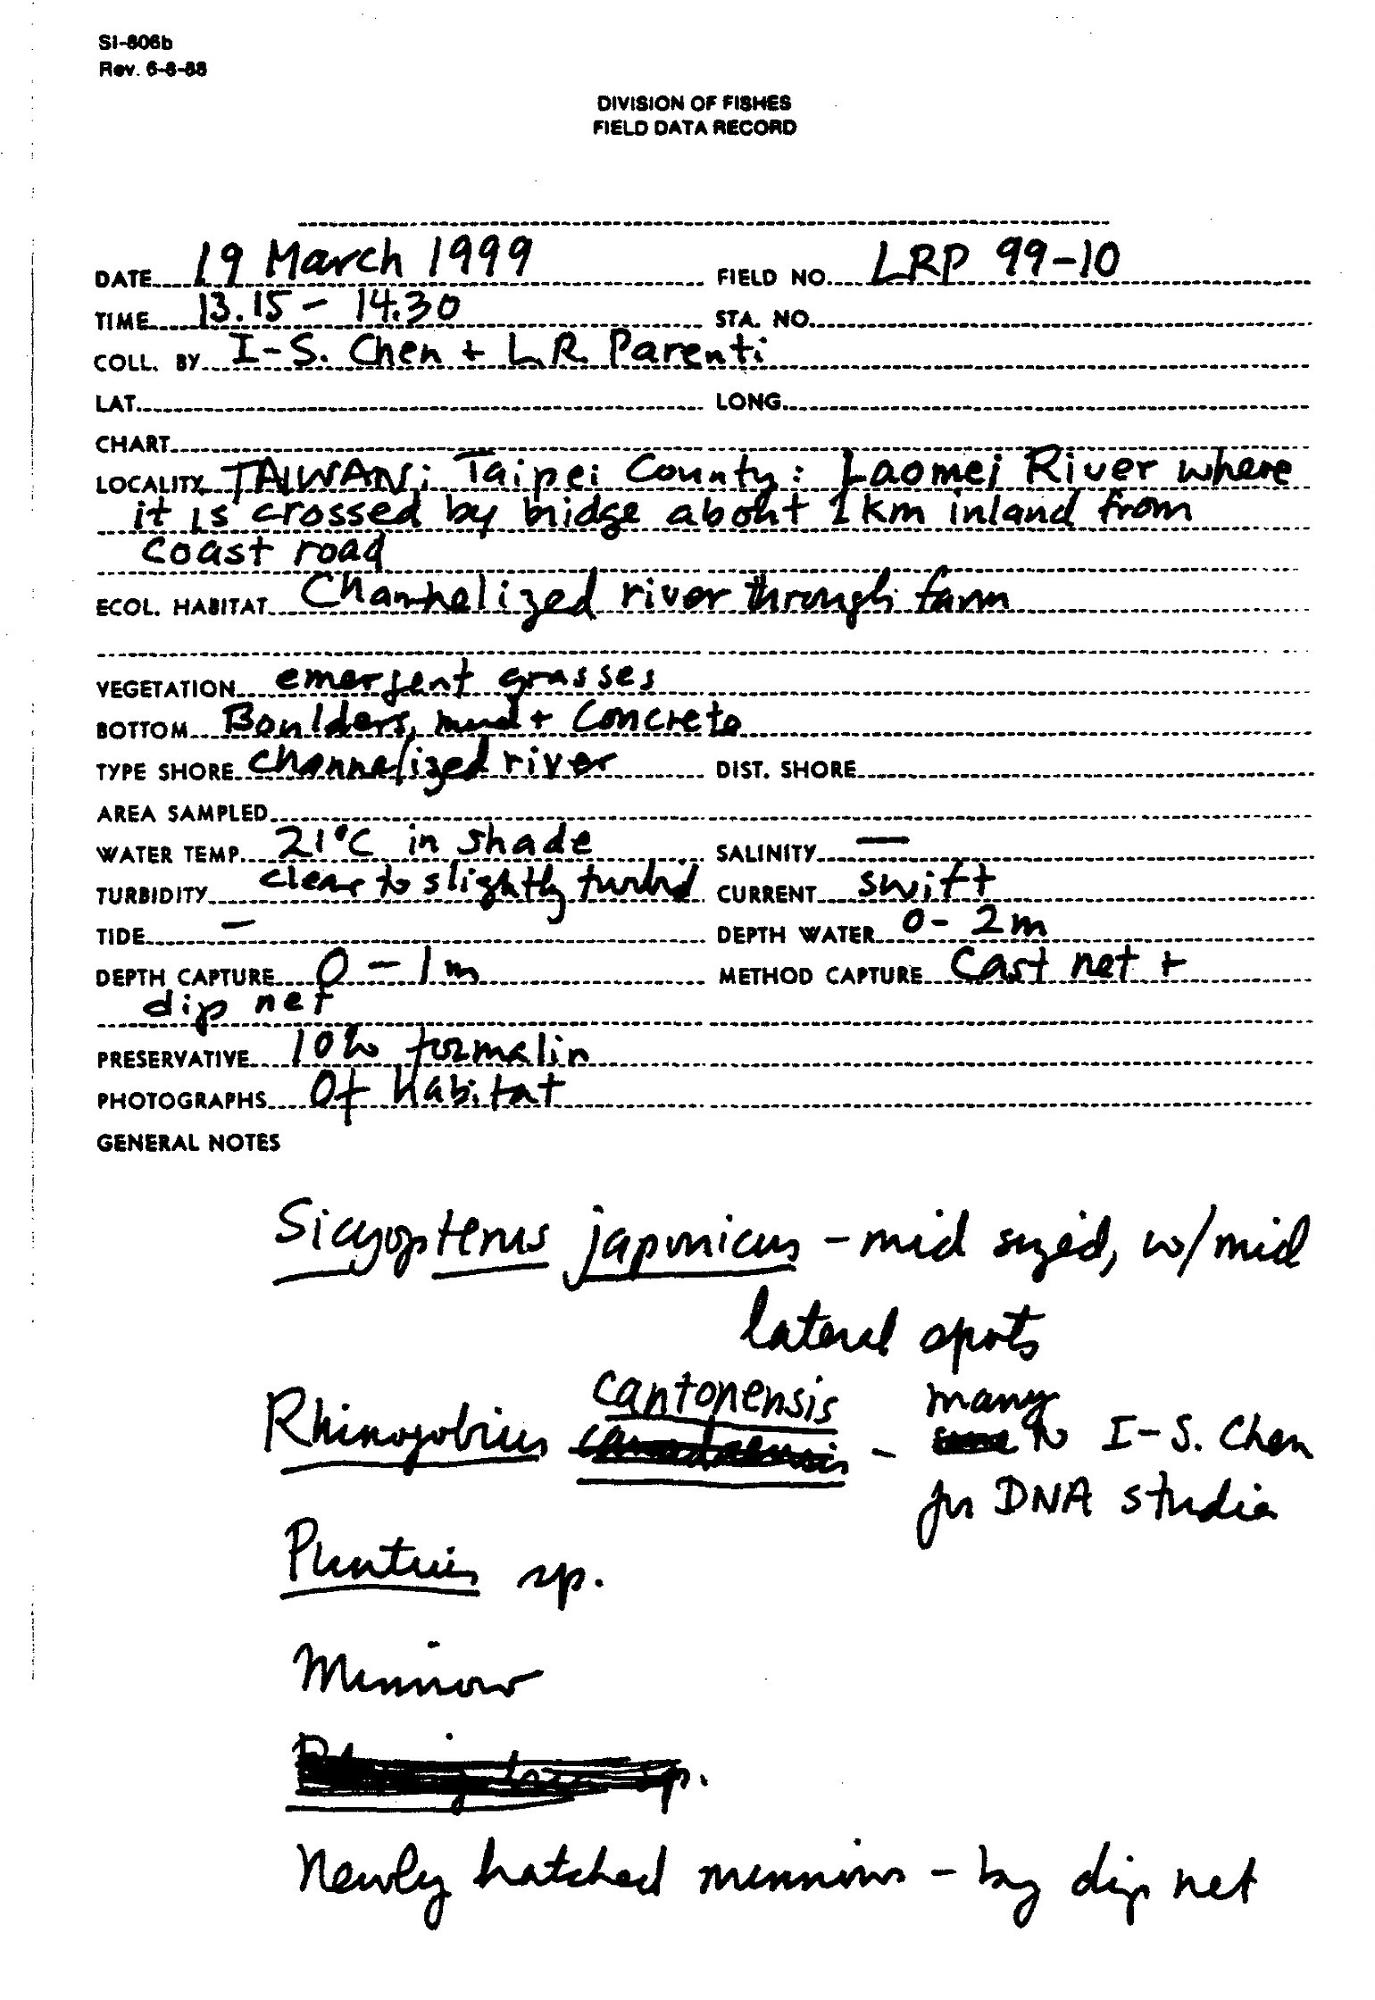 SI-806b
Rev. 6-8-88
DIVISION OF FISHES
FIELD DATA RECORD
DATE 19 March 1999 FIELD NO. LRP 99-10
TIME 13.15 - 14.30 STA. NO.
COLL. BY I-S. Chen + L.R. Parenti
LAT. LONG.
CHART
LOCALITY TAIWAN: Taipei County: Laomei River where
it is crossed by bridge about 1 km inland from
coast road
ECOL. HABITAT Channelized river through farm
VEGETATION emergent grasses
BOTTOM Boulders, mud + concrete
TYPE SHORE channelized river DIST. SHORE
AREA SAMPLED
WATER TEMP. 21°C in shade SALINITY —
TURBIDITY clear to slightly turbid CURRENT swift
TIDE — DEPTH WATER 0 - 2 m
DEPTH CAPTURE 0 - 1 m METHOD CAPTURE Cast net +
dip net
PRESERVATIVE 10% formalin
PHOTOGRAPHS Of habitat
GENERAL NOTES
Sicyopterus japonicus - mid sized, w/ mid
lateral spots
cantonensis many
Rhinogobius - to I-S. Chen
for DNA studies
Puntius sp.
Minnow
sp.
Newly hatched minnows - by dip net